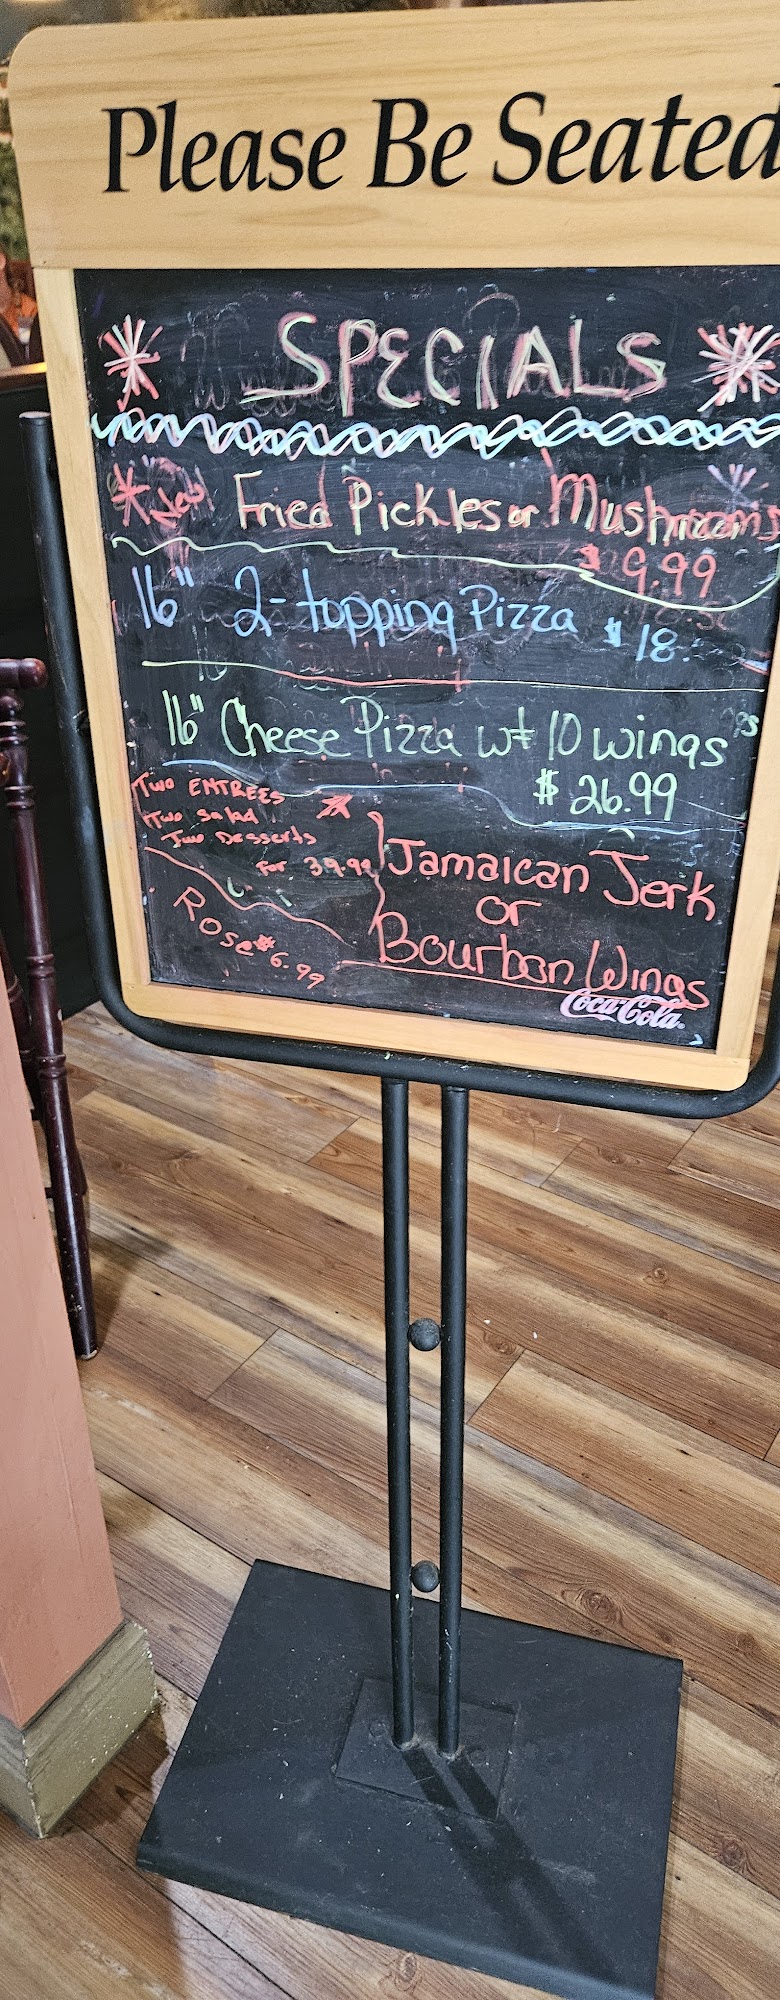 Please Be Seated
SPECIALS
New Fried Pickles or Mushrooms
$9.99
16" 2-topping Pizza $18.
16" Cheese Pizza wt 10 wings
$26.99
Two ENTREES
Two Salad
Two Desserts
For 39.99
Rose $6.99
Jamaican Jerk
or
Bourbon Wings
Coca-Cola